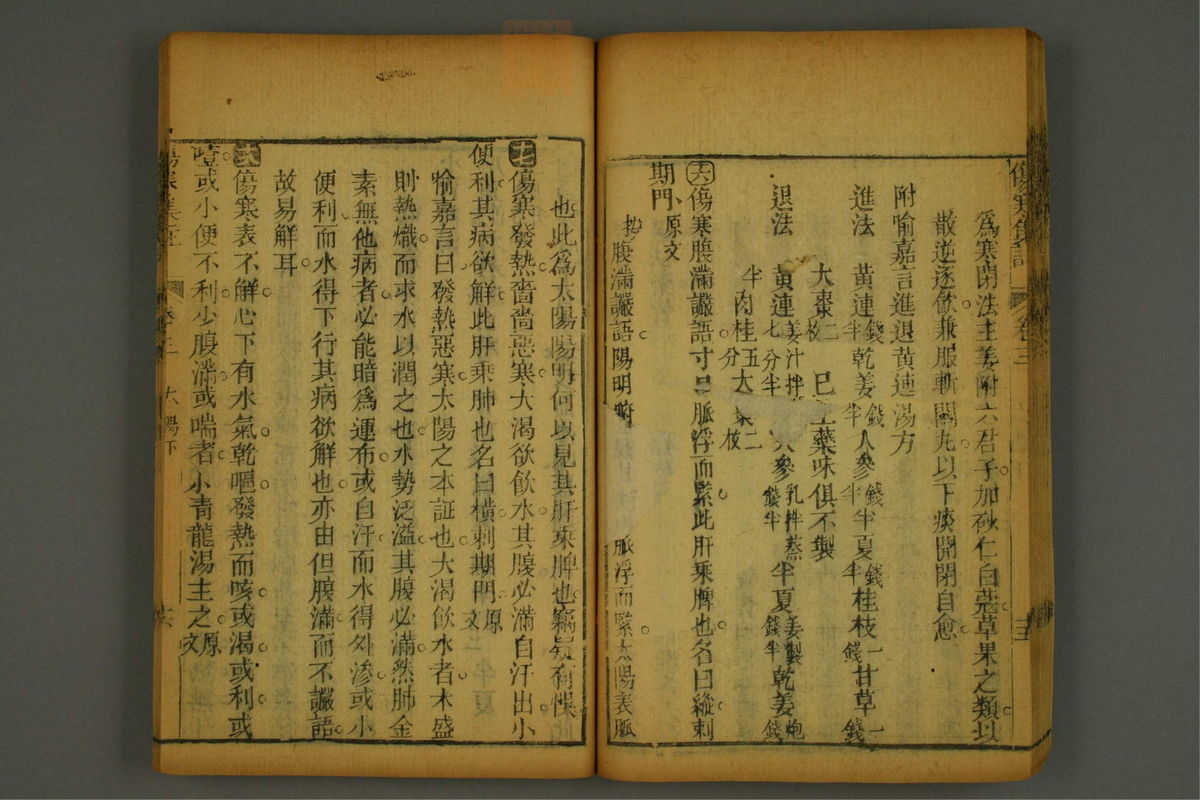 為寒閉法主姜附六君子加砂仁白蔻草果之類以
散逆逐飲兼服斬關丸以下痰開閉自愈
附喻嘉言進退黄連湯方
進法 黃連錢半乾姜錢半人參錢半半夏錢半桂枝一錢甘草一錢
大棗二枚 已上藥味俱不製
退法 黃連姜汁拌七分半人參乳拌蒸錢半半夏姜製錢半乾姜炮錢
半肉桂五分大棗二枚
傷寒腹滿讝語寸口脈浮而緊此肝乘脾也名曰縱刺
期門原文
抄腹滿讝語陽明腑 脈浮而緊太陽表脈
也此為太陽陽明何以見其肝乘脾也竊疑有悞
十七傷寒發熱嗇嗇惡寒大渴欲飲水其腹必滿自汗出小
便利其病欲解此肝乘肺也名曰橫刺期門原文
喻嘉言曰發熱惡寒太陽之本証也大渴飲水者木盛
則熱熾而求水以潤之也水勢泛溢其腹必滿然肺金
素無他病者必能暗為運布或自汗而水得外滲或小
便利而水得下行其病欲解也亦由但腹滿而不讝語
故易解耳
傷寒表不解心下有水氣乾嘔發熱而咳或渴或利或
噎或小便不利少腹滿或喘者小青龍湯主之原文
卷三 太陽下